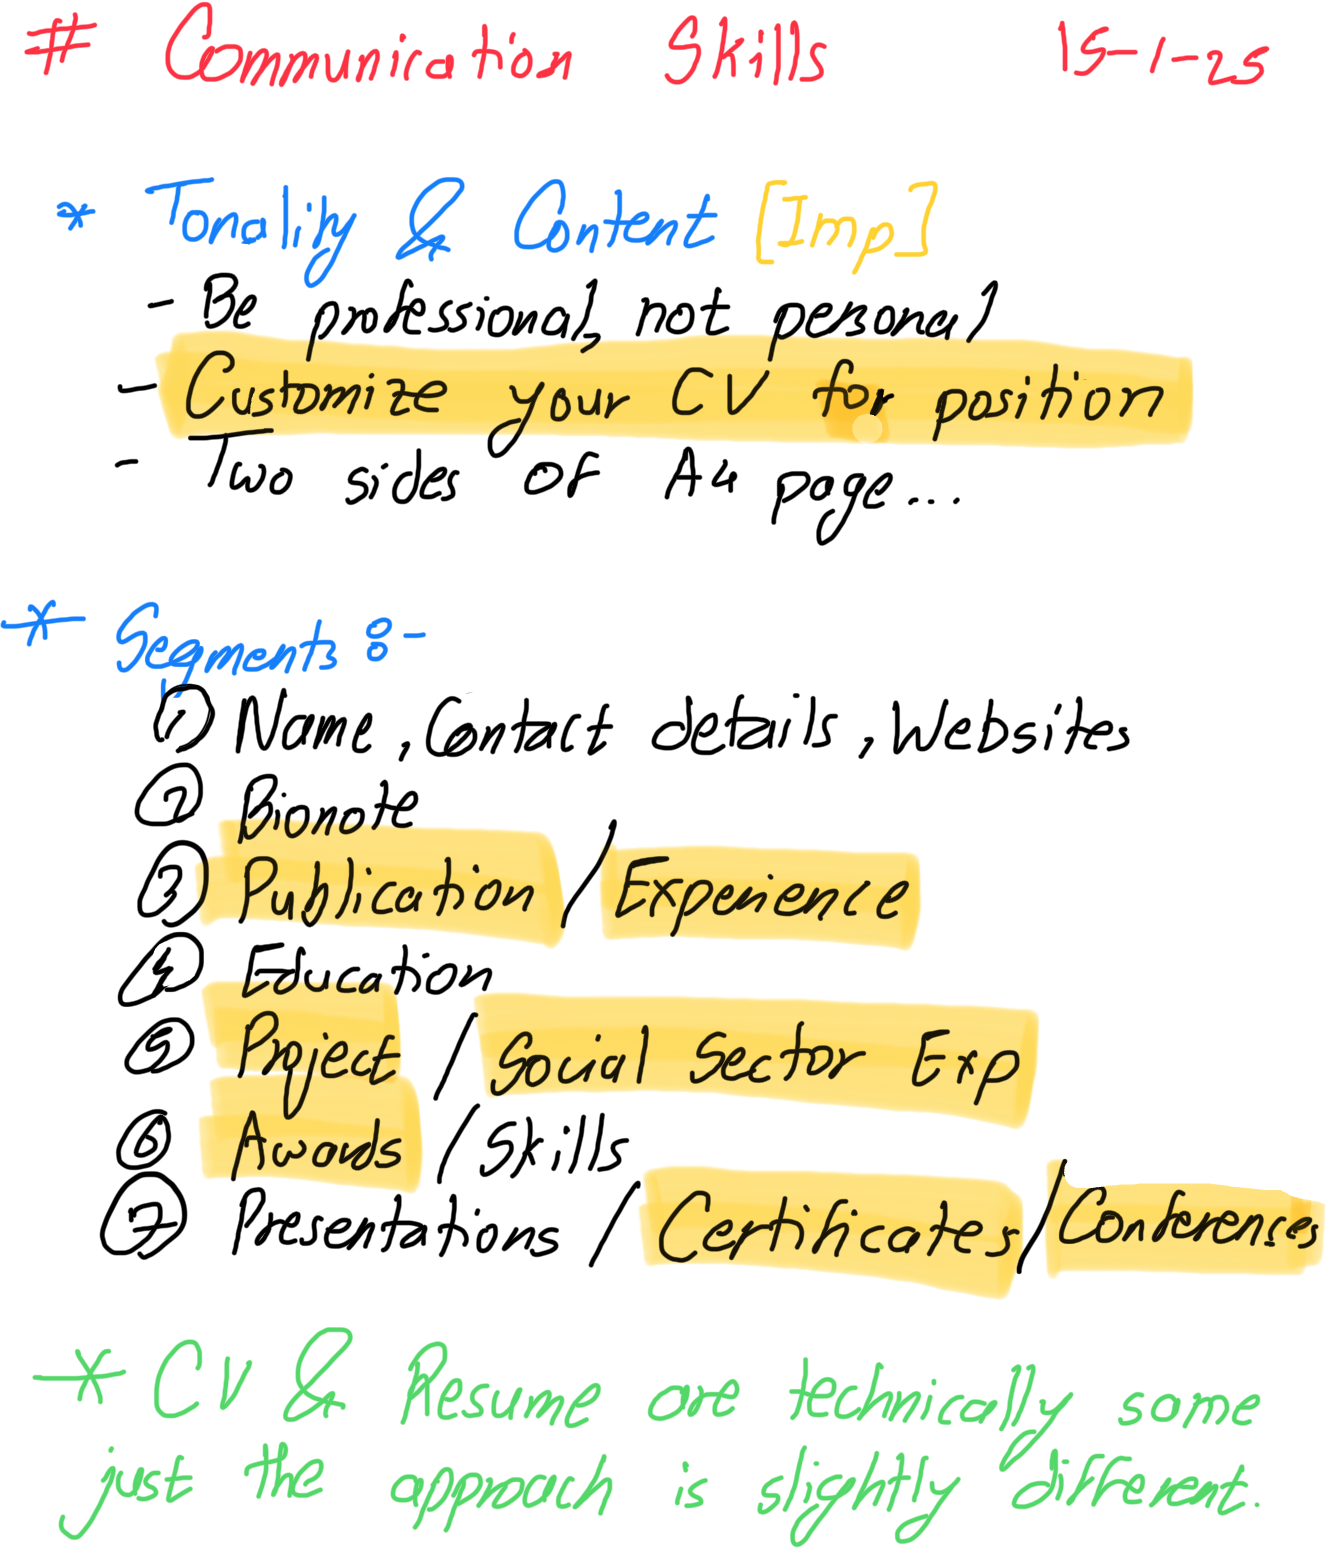 # Communication Skills 15-1-25
* Tonality & Content [Imp]
- Be professional, not personal
- Customize your CV for position
- Two sides of A4 page...
* Segments :-
① Name, Contact details, Websites
② Bionote
③ Publication / Experience
④ Education
⑤ Project / Social Sector Exp
⑥ Awards / Skills
⑦ Presentations / Certificates / Conferences
* CV & Resume are technically same
just the approach is slightly different.